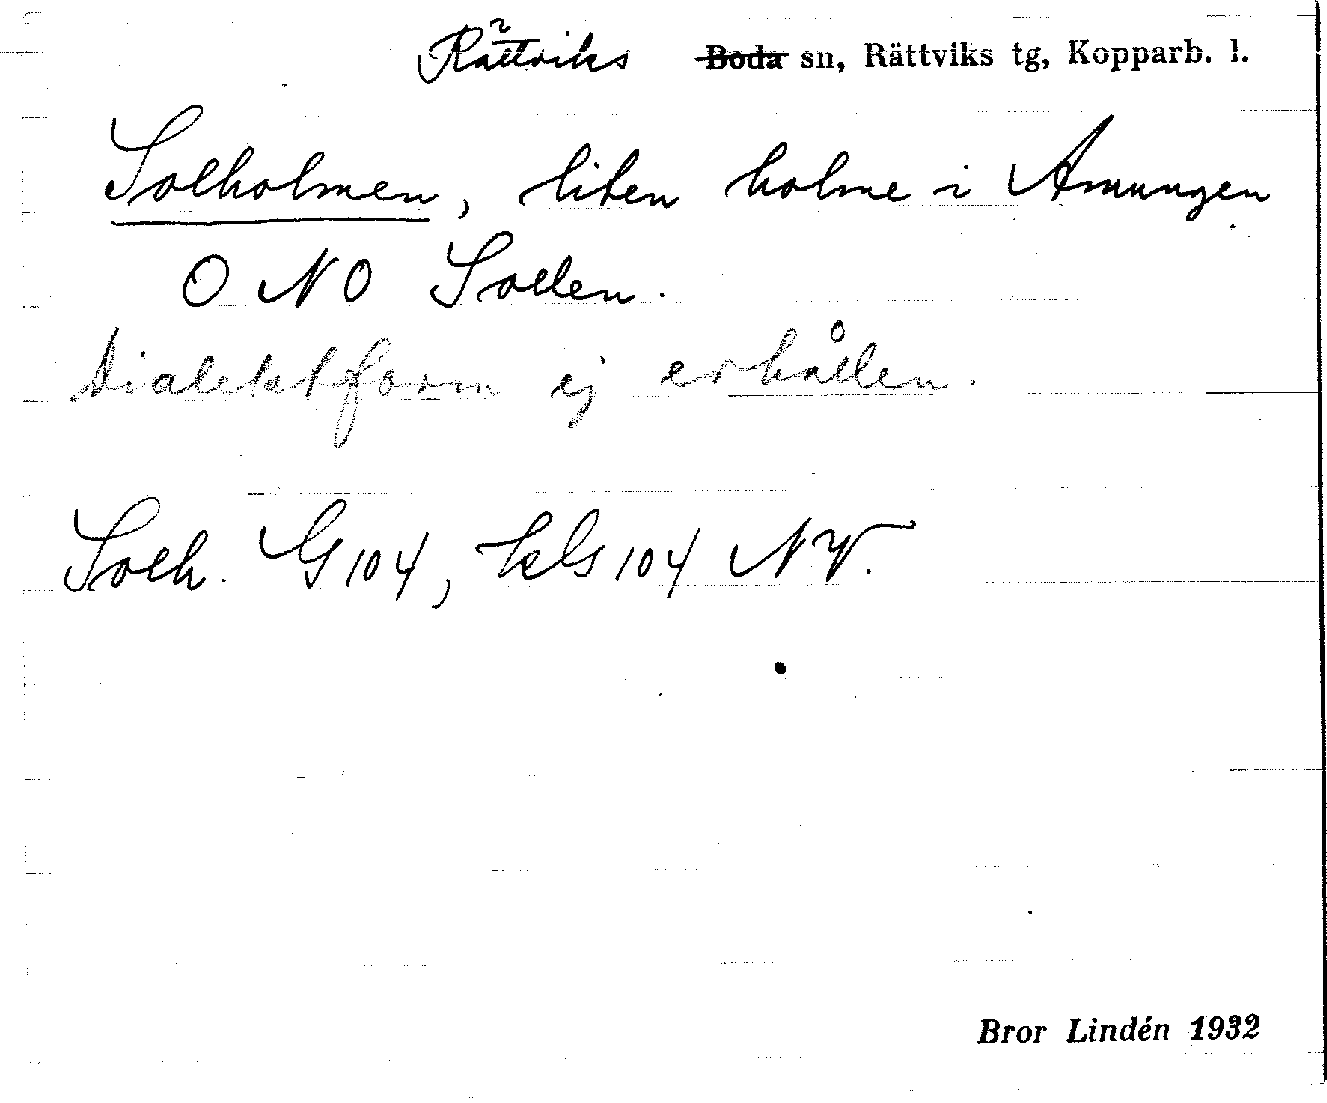 Rättviks Boda sn, Rättviks tg, Kopparb. l.
Solholmen, liten holme i Amungen
O N O Sollen.
Dialektform ej erhållen.
Solh. G 104, kls 104 NV.
Bror Lindén 1932